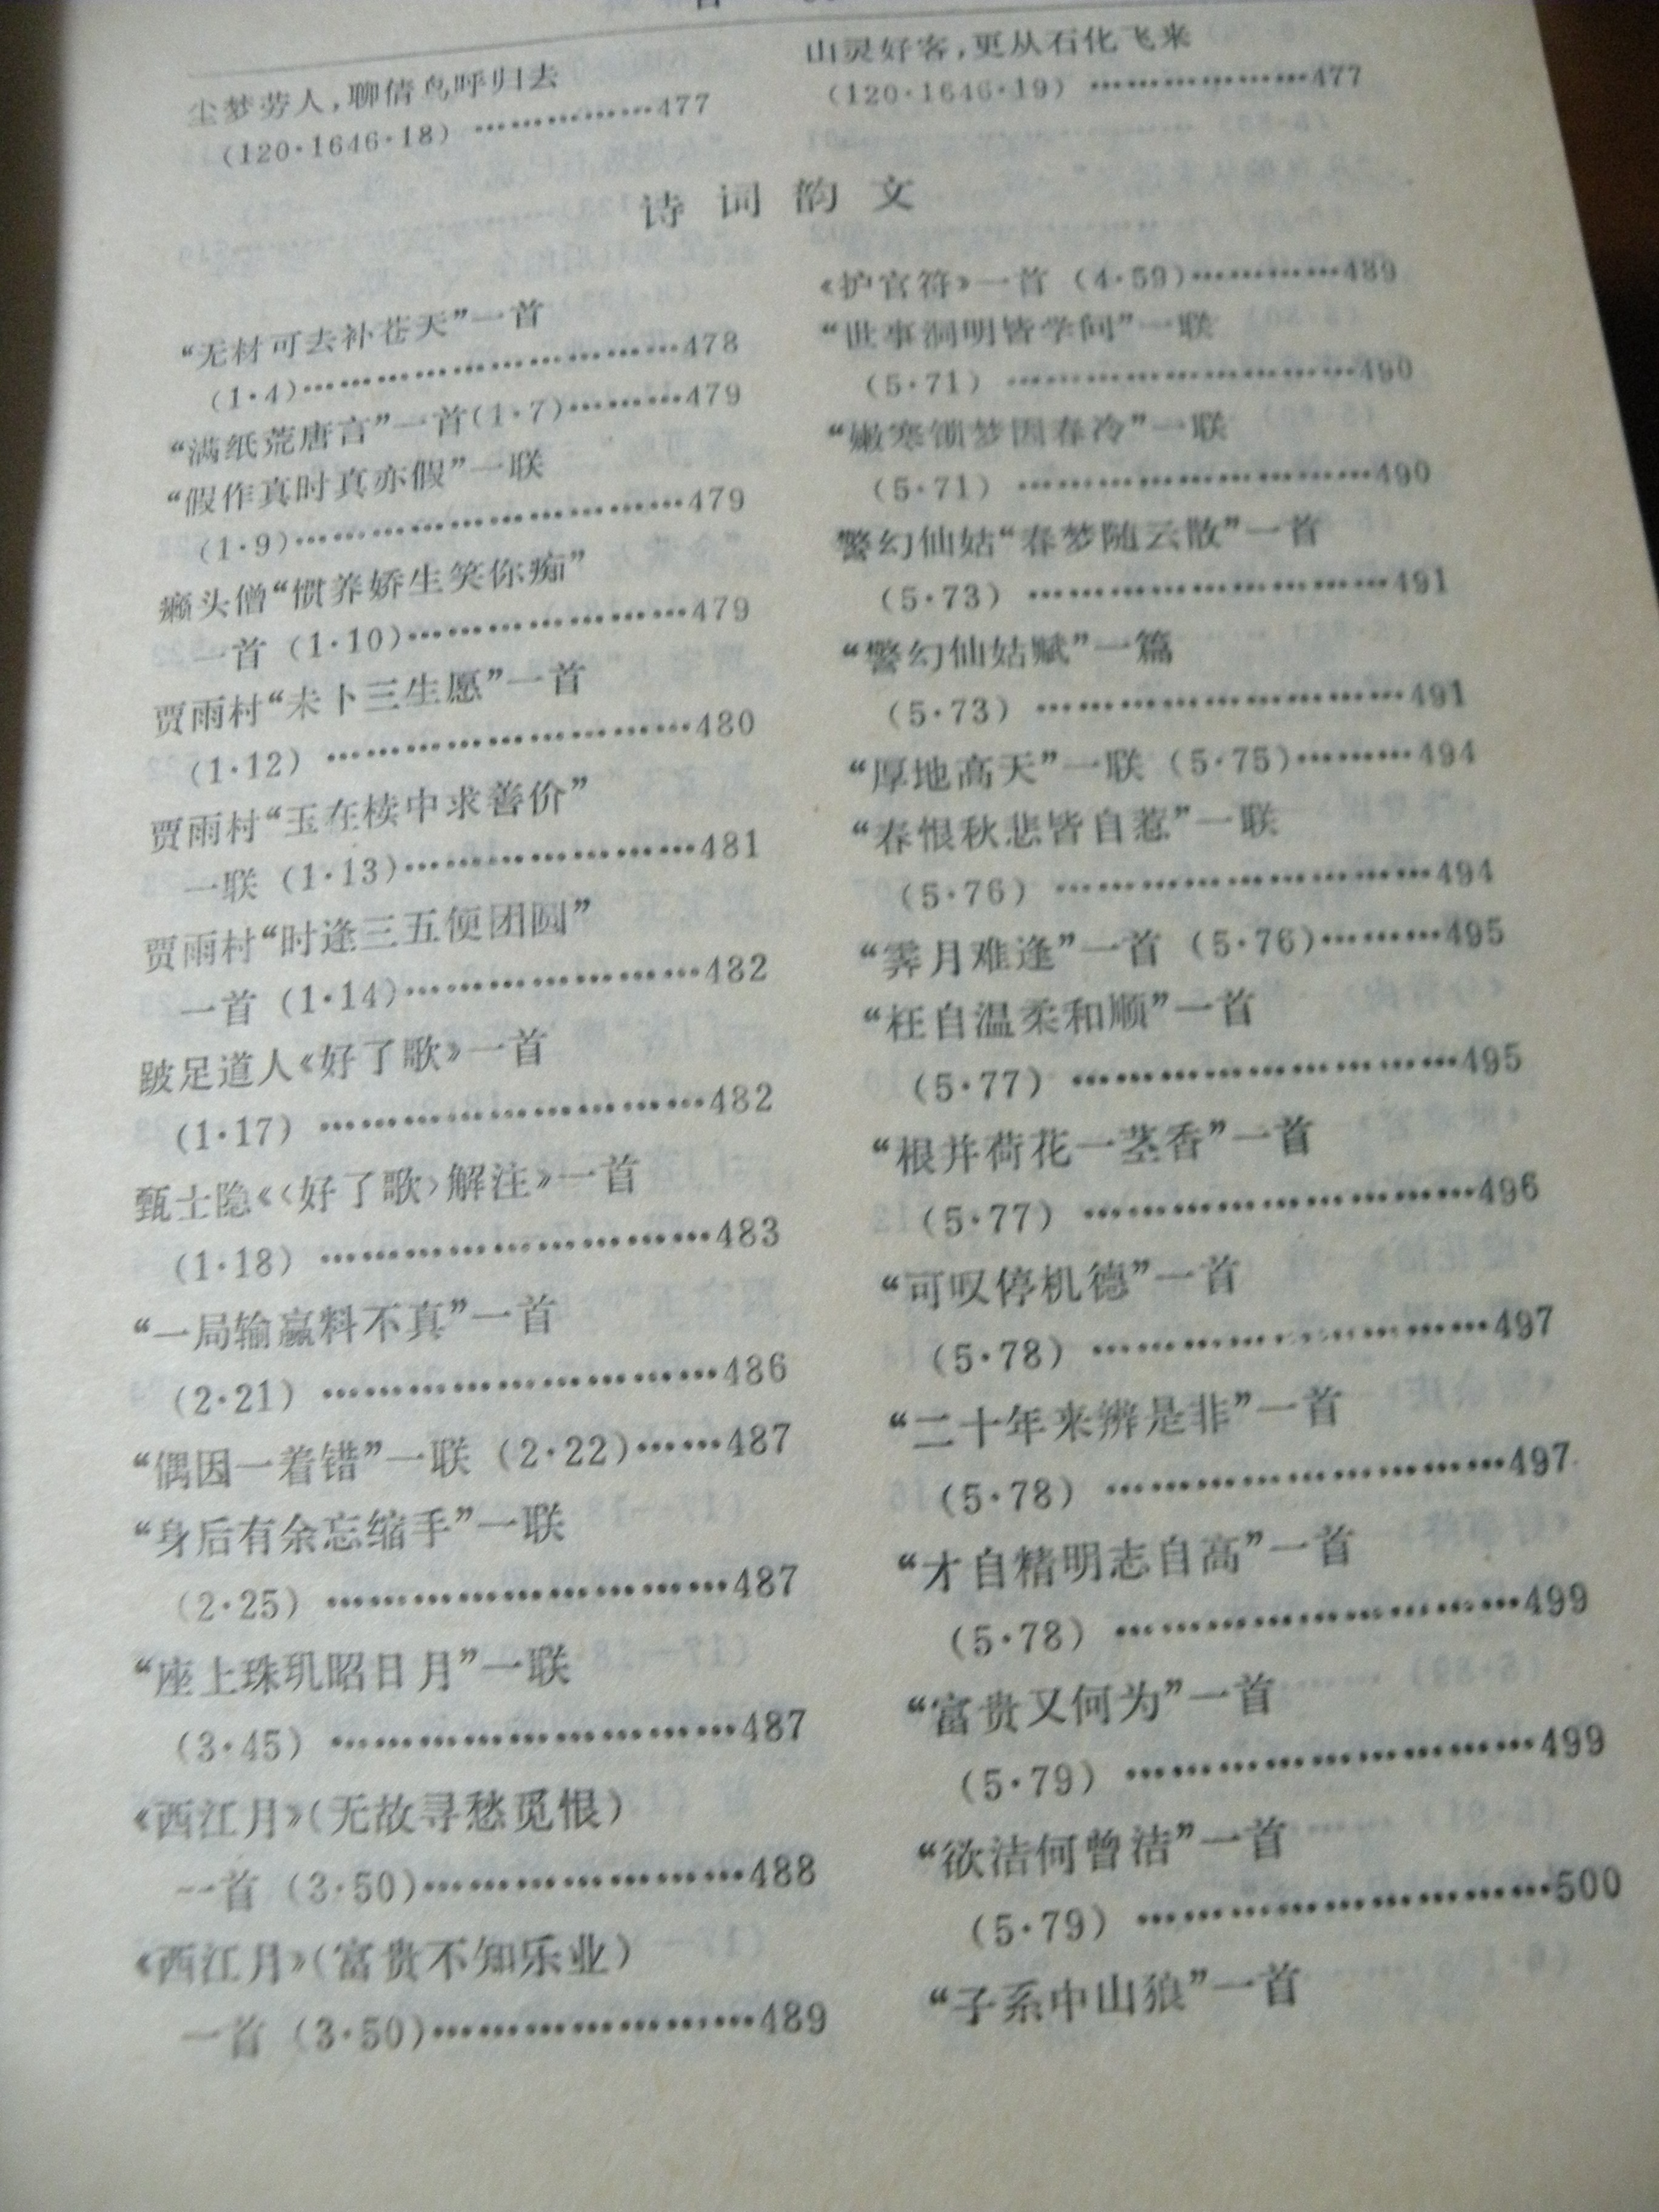 尘梦劳人，聊倩鸟呼归去
（120·1646·18）………………477
山灵好客，更从石化飞来
（120·1646·19）…………………477
诗词韵文
“无材可去补苍天”一首
（1·4）…………………………………478
“满纸荒唐言”一首（1·7）………479
“假作真时真亦假”一联
（1·9）…………………………………479
癞头僧“惯养娇生笑你痴”
一首（1·10）………………………479
贾雨村“未卜三生愿”一首
（1·12）………………………………480
贾雨村“玉在椟中求善价”
一联（1·13）………………………481
贾雨村“时逢三五便团圆”
一首（1·14）………………………482
跛足道人《好了歌》一首
（1·17）………………………………482
甄士隐《〈好了歌〉解注》一首
（1·18）………………………………483
“一局输赢料不真”一首
（2·21）………………………………486
“偶因一着错”一联（2·22）……487
“身后有余忘缩手”一联
（2·25）………………………………487
“座上珠玑昭日月”一联
（3·45）………………………………487
《西江月》（无故寻愁觅恨）
一首（3·50）………………………488
《西江月》（富贵不知乐业）
一首（3·50）………………………489
《护官符》一首（4·59）…………489
“世事洞明皆学问”一联
（5·71）……………………………490
“嫩寒锁梦因春冷”一联
（5·71）……………………………490
警幻仙姑“春梦随云散”一首
（5·73）……………………………491
“警幻仙姑赋”一篇
（5·73）……………………………491
“厚地高天”一联（5·75）………494
“春恨秋悲皆自惹”一联
（5·76）……………………………494
“霁月难逢”一首（5·76）………495
“枉自温柔和顺”一首
（5·77）……………………………495
“根并荷花一茎香”一首
（5·77）……………………………496
“可叹停机德”一首
（5·78）……………………………497
“二十年来辨是非”一首
（5·78）……………………………497
“才自精明志自高”一首
（5·78）……………………………499
“富贵又何为”一首
（5·79）……………………………499
“欲洁何曾洁”一首
（5·79）……………………………500
“子系中山狼”一首